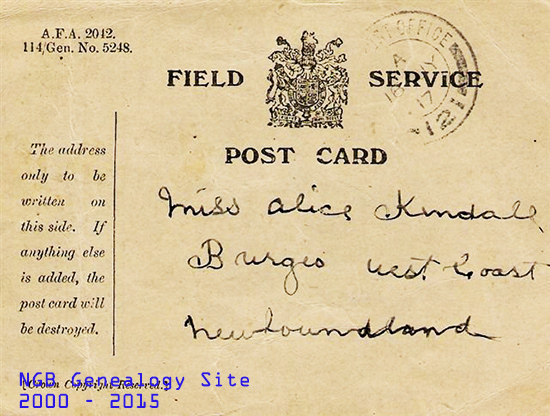 A.F.A. 2042.
114/Gen. No. 5248.
FIELD SERVICE
POST CARD
The address
only to be
written on
this side. If
anything else
is added, the
post card will
be destroyed.
Miss Alice Kendall
Burgeo West Coast
Newfoundland
[Crown Copyright Reserved.]
NGB Genealogy Site
2000 - 2015